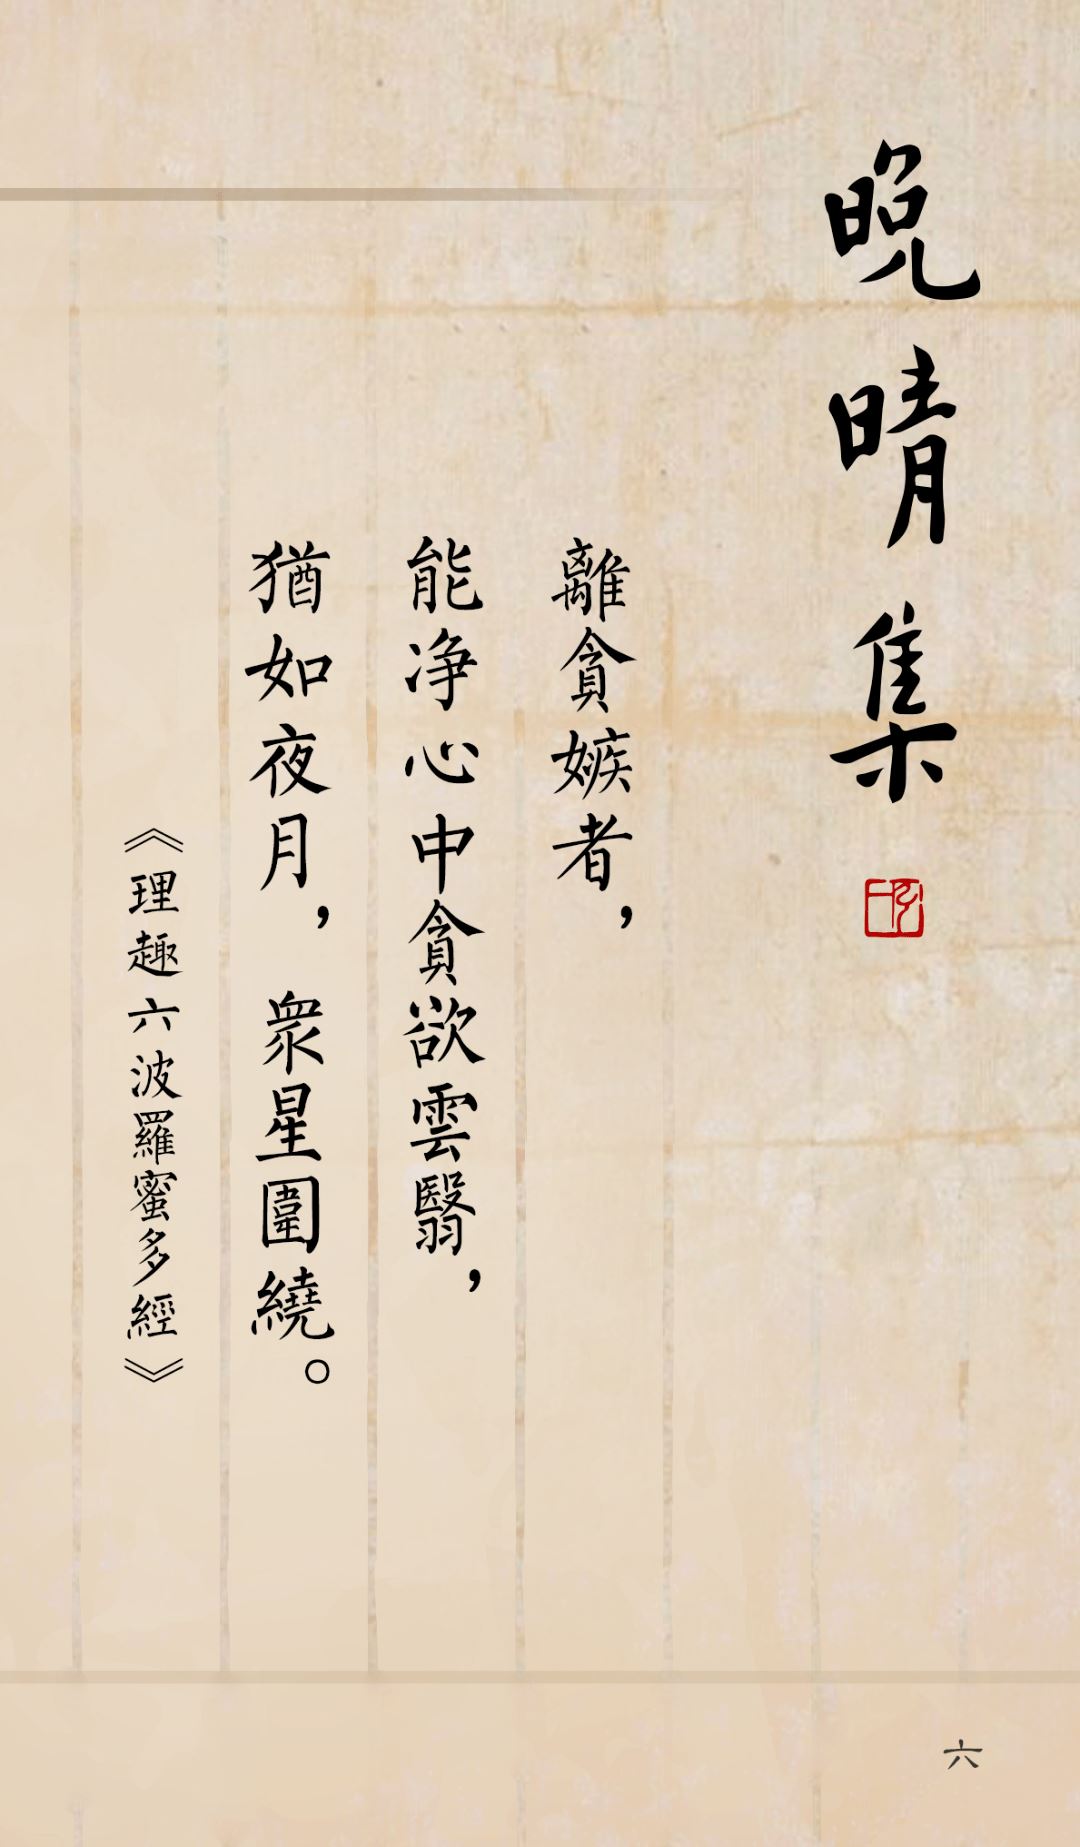 晚晴集
離貪嫉者，
能净心中貪欲雲翳，
猶如夜月，衆星圍繞。
《理趣六波羅蜜多經》
六